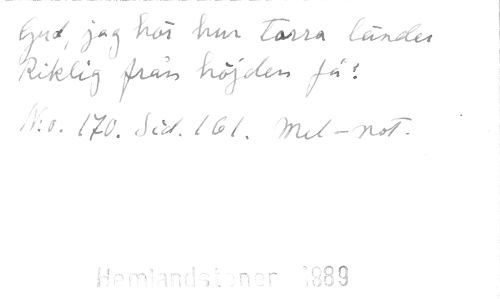 Gud, jag hör hur torra länder
Riklig från höjden få!
N:o. 170. Sid. 161. Mel-not.
Hemlandstoner 1889